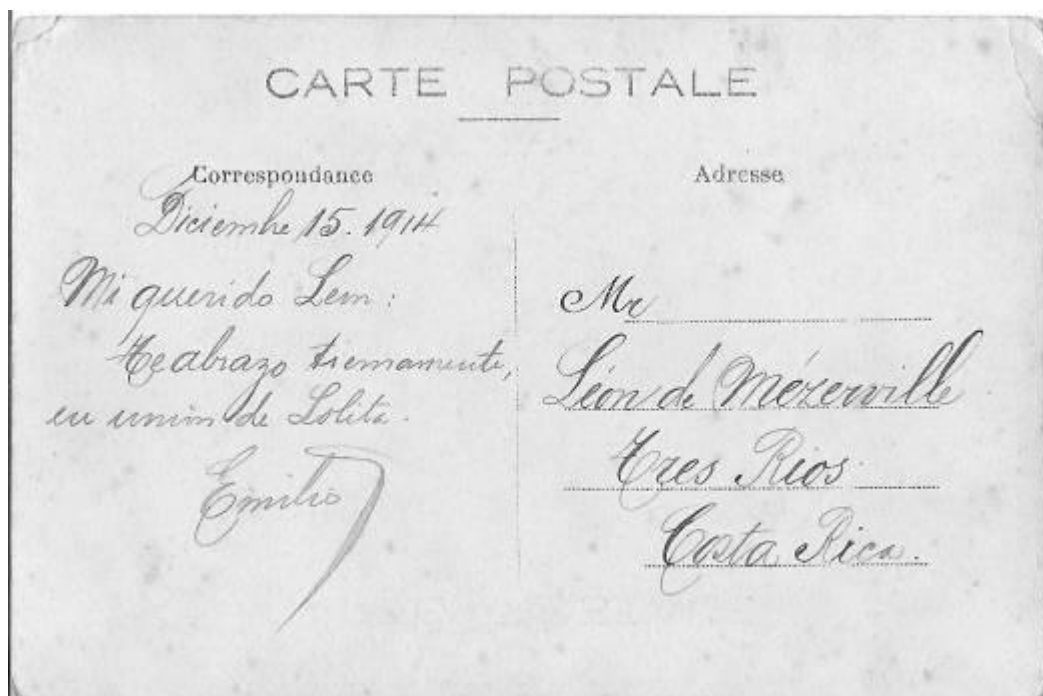 CARTE POSTALE
Correspondance
Diciembre 15. 1914
Mi querido Leon:
Te abrazo tiernamente,
en union de Lolita.
Emilio
Adresse
Mr
Léon de Mézerville
Tres Rios
Costa Rica.